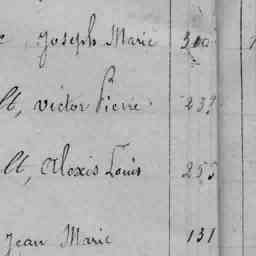 Joseph Marie 300
lt, Victor Pierre 232
lt, Alexis Louis 255
Jean Marie 131